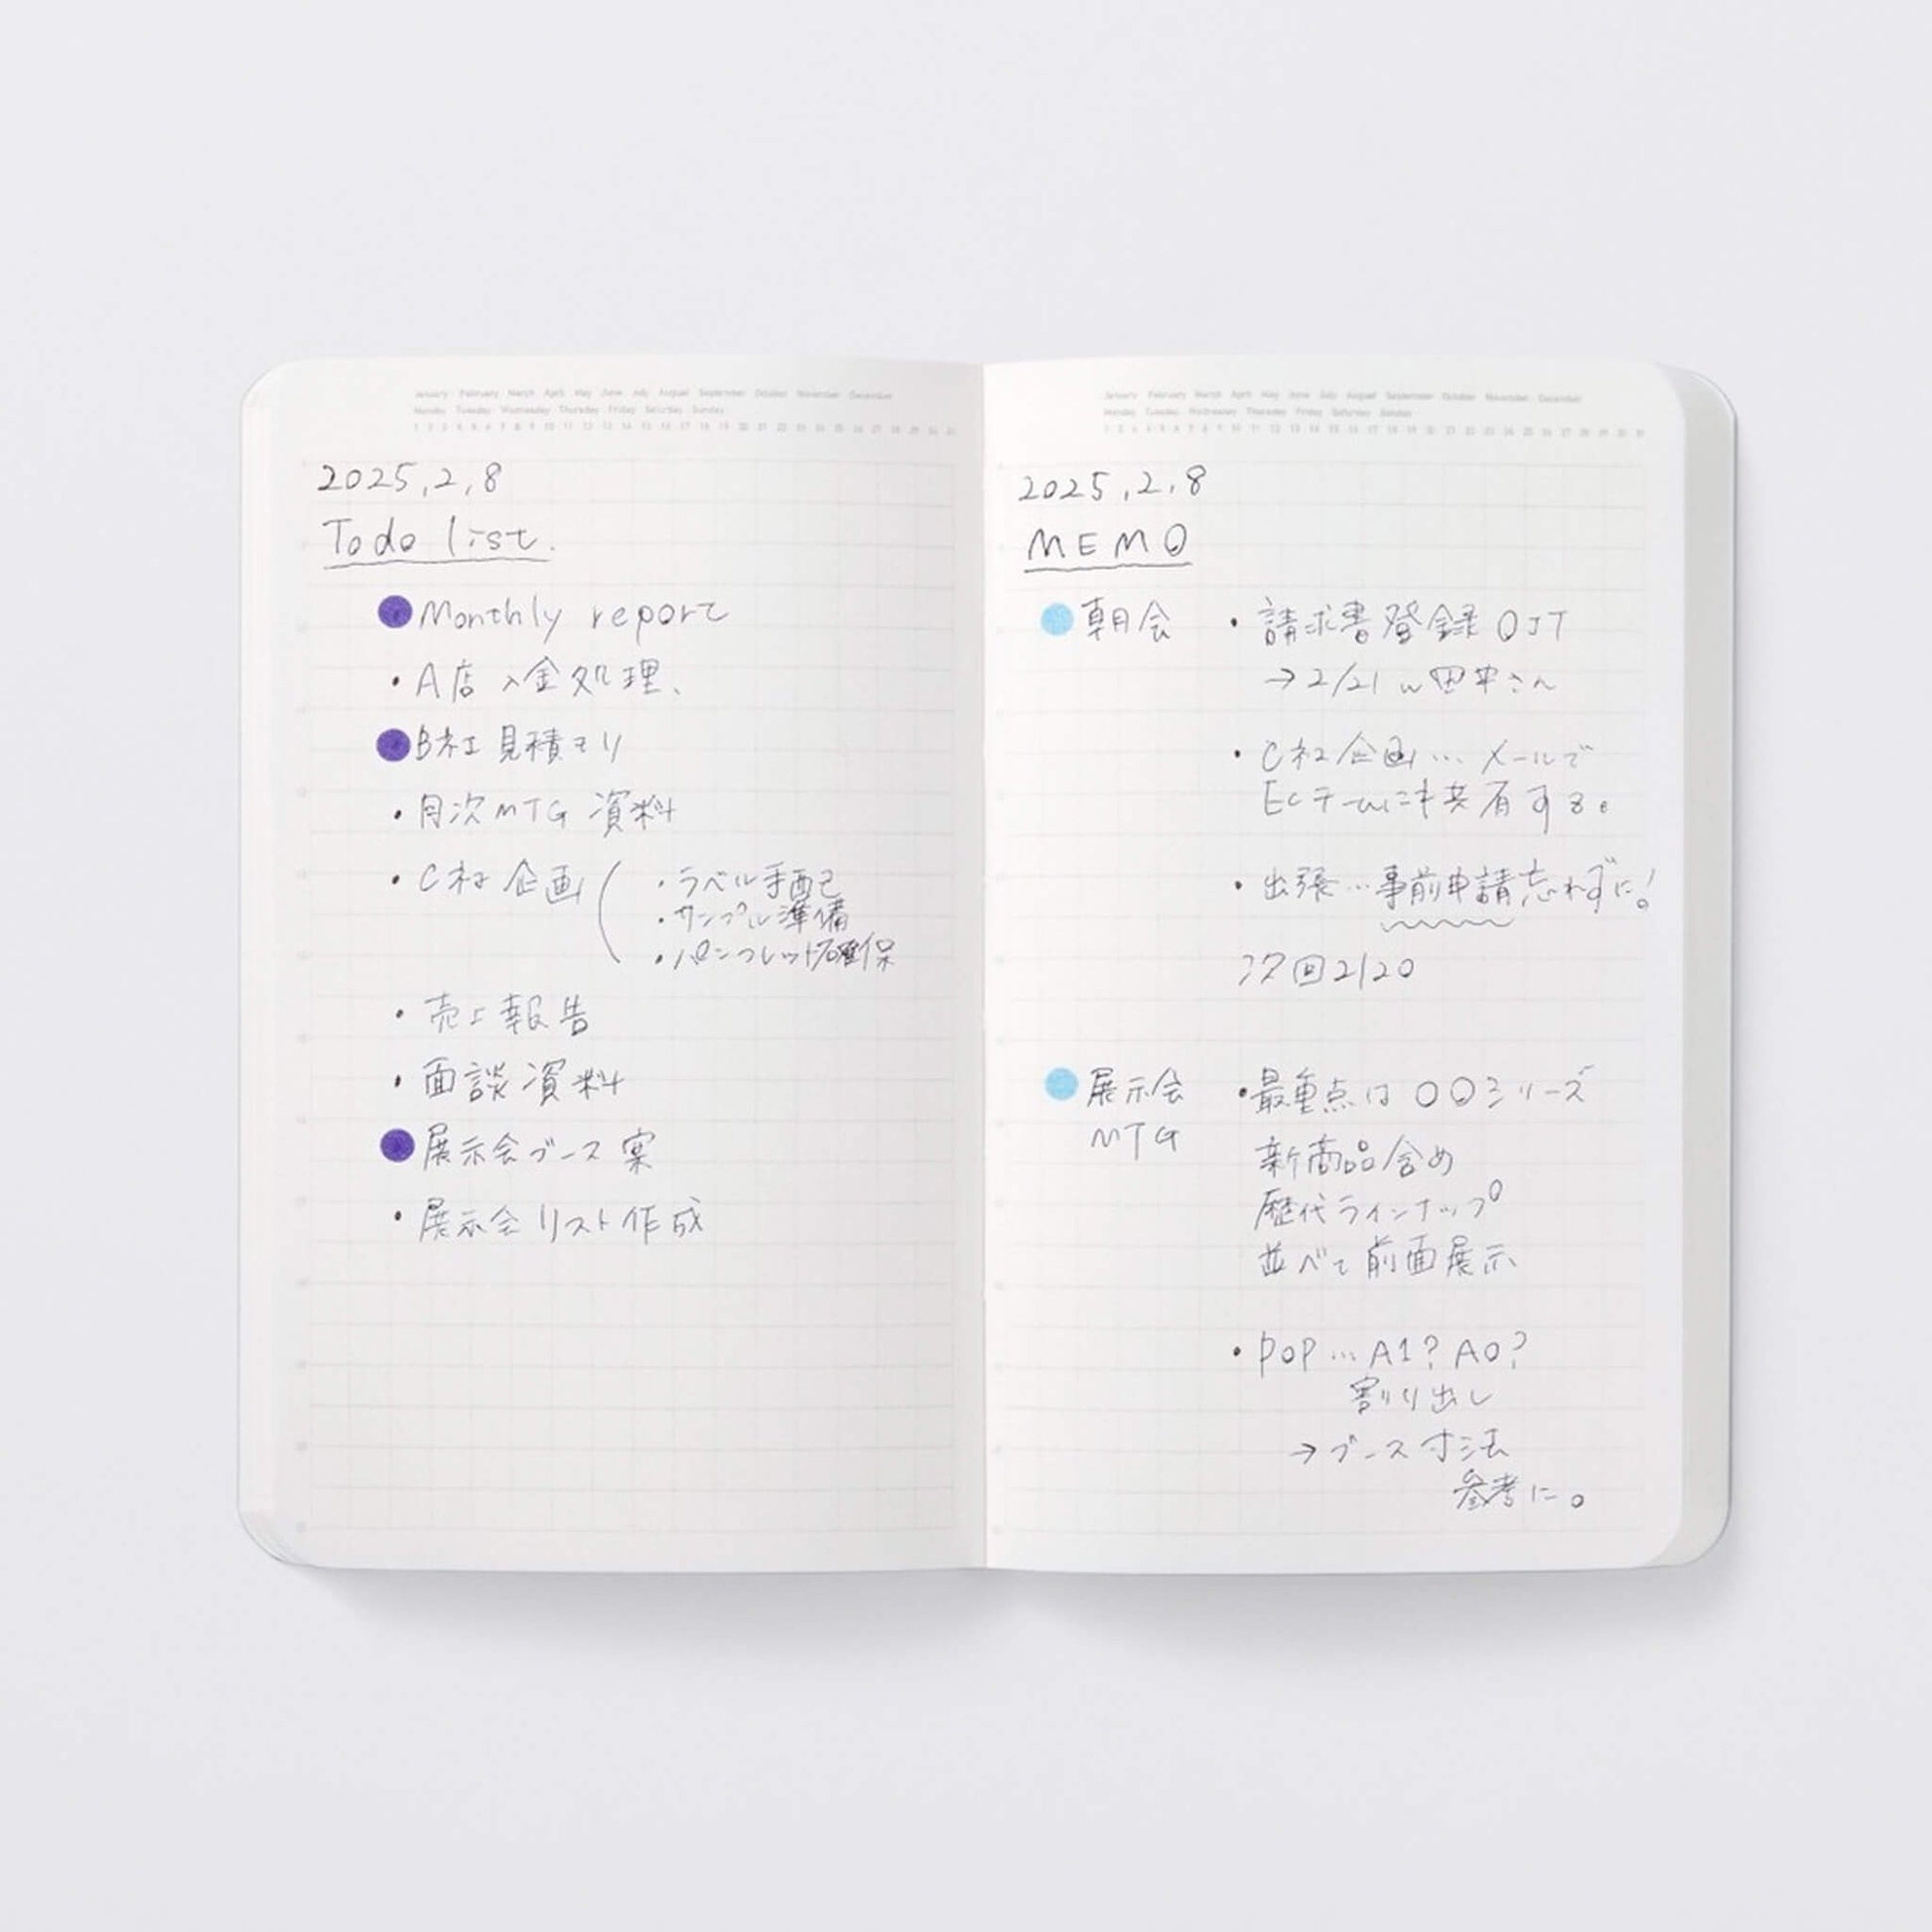 January February March April May June July August September October November December
Monday Tuesday Wednesday Thursday Friday Saturday Sunday
1 2 3 4 5 6 7 8 9 10 11 12 13 14 15 16 17 18 19 20 21 22 23 24 25 26 27 28 29 30 31
2025,2,8
Todo list.
Monthly report
・A店 入金処理、
B社 見積モリ
・月次MTG 資料
・C社 企画(
・ラベル手配
・サンプル準備
・パンフレット確保
・売上報告
・面談資料
展示会ブース案
・展示会リスト作成
January February March April May June July August September October November December
Monday Tuesday Wednesday Thursday Friday Saturday Sunday
1 2 3 4 5 6 7 8 9 10 11 12 13 14 15 16 17 18 19 20 21 22 23 24 25 26 27 28 29 30 31
2025,2,8
MEMO
朝会 ・請求書登録OJT
→2/21 w田中さん
・C社企画…メールで
ECチームにも共有する。
・出張…事前申請忘れずに!。
次回2/20
展示会 ・最重点は〇〇シリーズ
MTG
新商品含め
歴代ラインナップ
並べて前面展示
・POP…A1?A0?
割り出し
→ブース寸法
参考に。